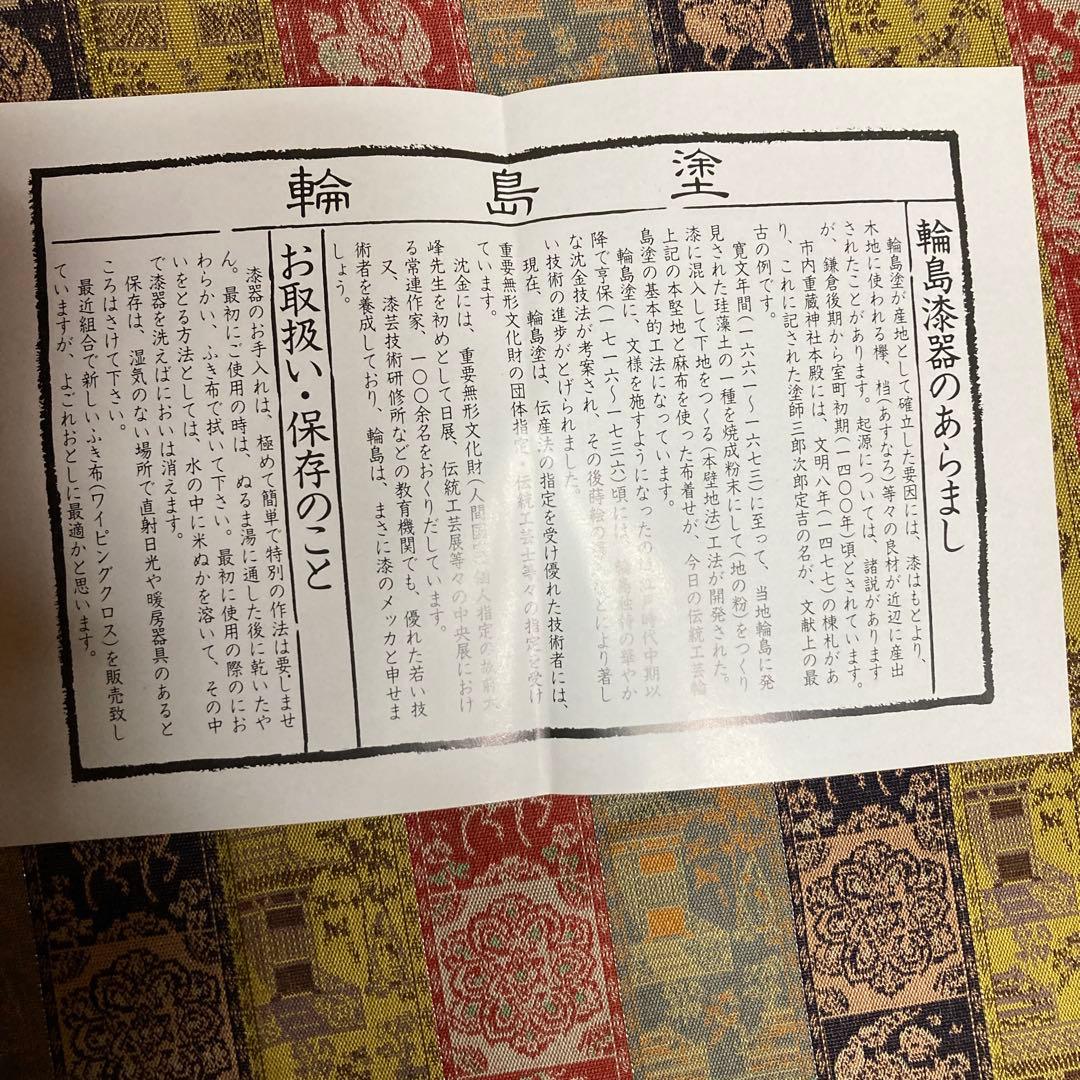 輪島塗
輪島漆器のあらまし
輪島塗が産地として確立した要因には、漆はもとより、
木地に使われる欅、档(あすなろ)等々の良材が近辺に産出
されたことがあります。起源については、諸説があります
が、鎌倉後期から室町初期(一四〇〇年)頃とされています。
市内重蔵神社本殿には、文明八年(一四七七)の棟札があ
り、これに記された塗師三郎次郎定吉の名が、文献上の最
古の例です。
寛文年間(一六六一〜一六七三)に至って、当地輪島に発
見された珪藻土の一種を焼成粉末にして(地の粉)をつくり
漆に混入して下地をつくる(本壁地法)工法が開発された。
上記の本堅地と麻布を使った布着せが、今日の伝統工芸輪
島塗の基本的工法になっています。
輪島塗に、文様を施すようになったのは江戸時代中期以
降で享保(一七一六〜一七三六)頃には、の華やか
な沈金技法が考案され、その後蒔絵のとにより著し
い技術の進歩がとげられました。
現在、輪島塗は、伝産法の指定を受け優れた技術者には、
重要無形文化財の団体指定・伝統工芸士等々の指定を受け
ています。
沈金には、重要無形文化財(人間国宝)個人指定の故前大
峰先生を初めとして日展、伝統工芸展等々の中央展におけ
る常連作家、一〇〇余名をおくりだしています。
又、漆芸技術研修所などの教育機関でも、優れた若い技
術者を養成しており、輪島は、まさに漆のメッカと申せま
しょう。
お取扱い・保存のこと
漆器のお手入れは、極めて簡単で特別の作法は要しませ
ん。最初にご使用の時は、ぬるま湯に通した後に乾いたや
わらかい、ふき布で拭いて下さい。最初に使用の際のにお
いをとる方法としては、水の中に米ぬかを溶いて、その中
で漆器を洗えばにおいは消えます。
保存は、湿気のない場所で直射日光や暖房器具のあると
ころはさけて下さい。
最近組合で新しいふき布(ワイピングクロス)を販売致し
ていますが、よごれおとしに最適かと思います。